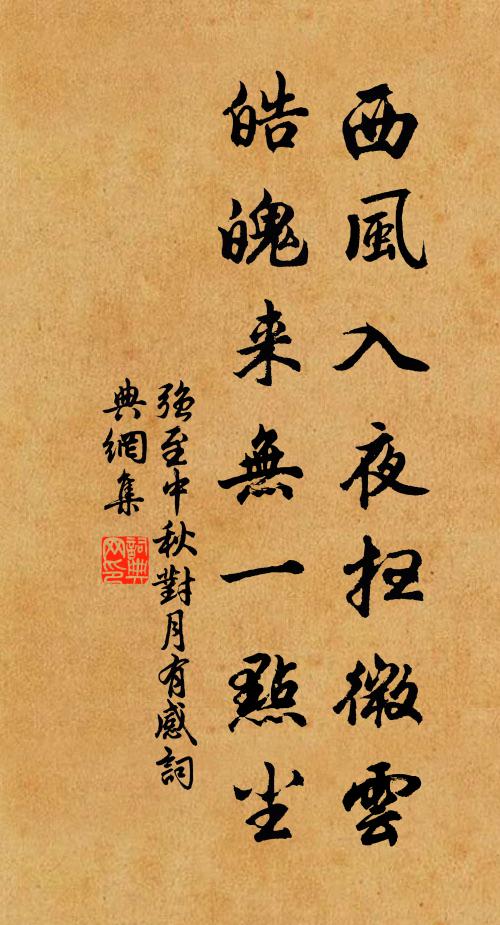 西風入夜扫微雲
皓魄来無一點尘
強至中秋對月有感詞
典網集
詞典
网印